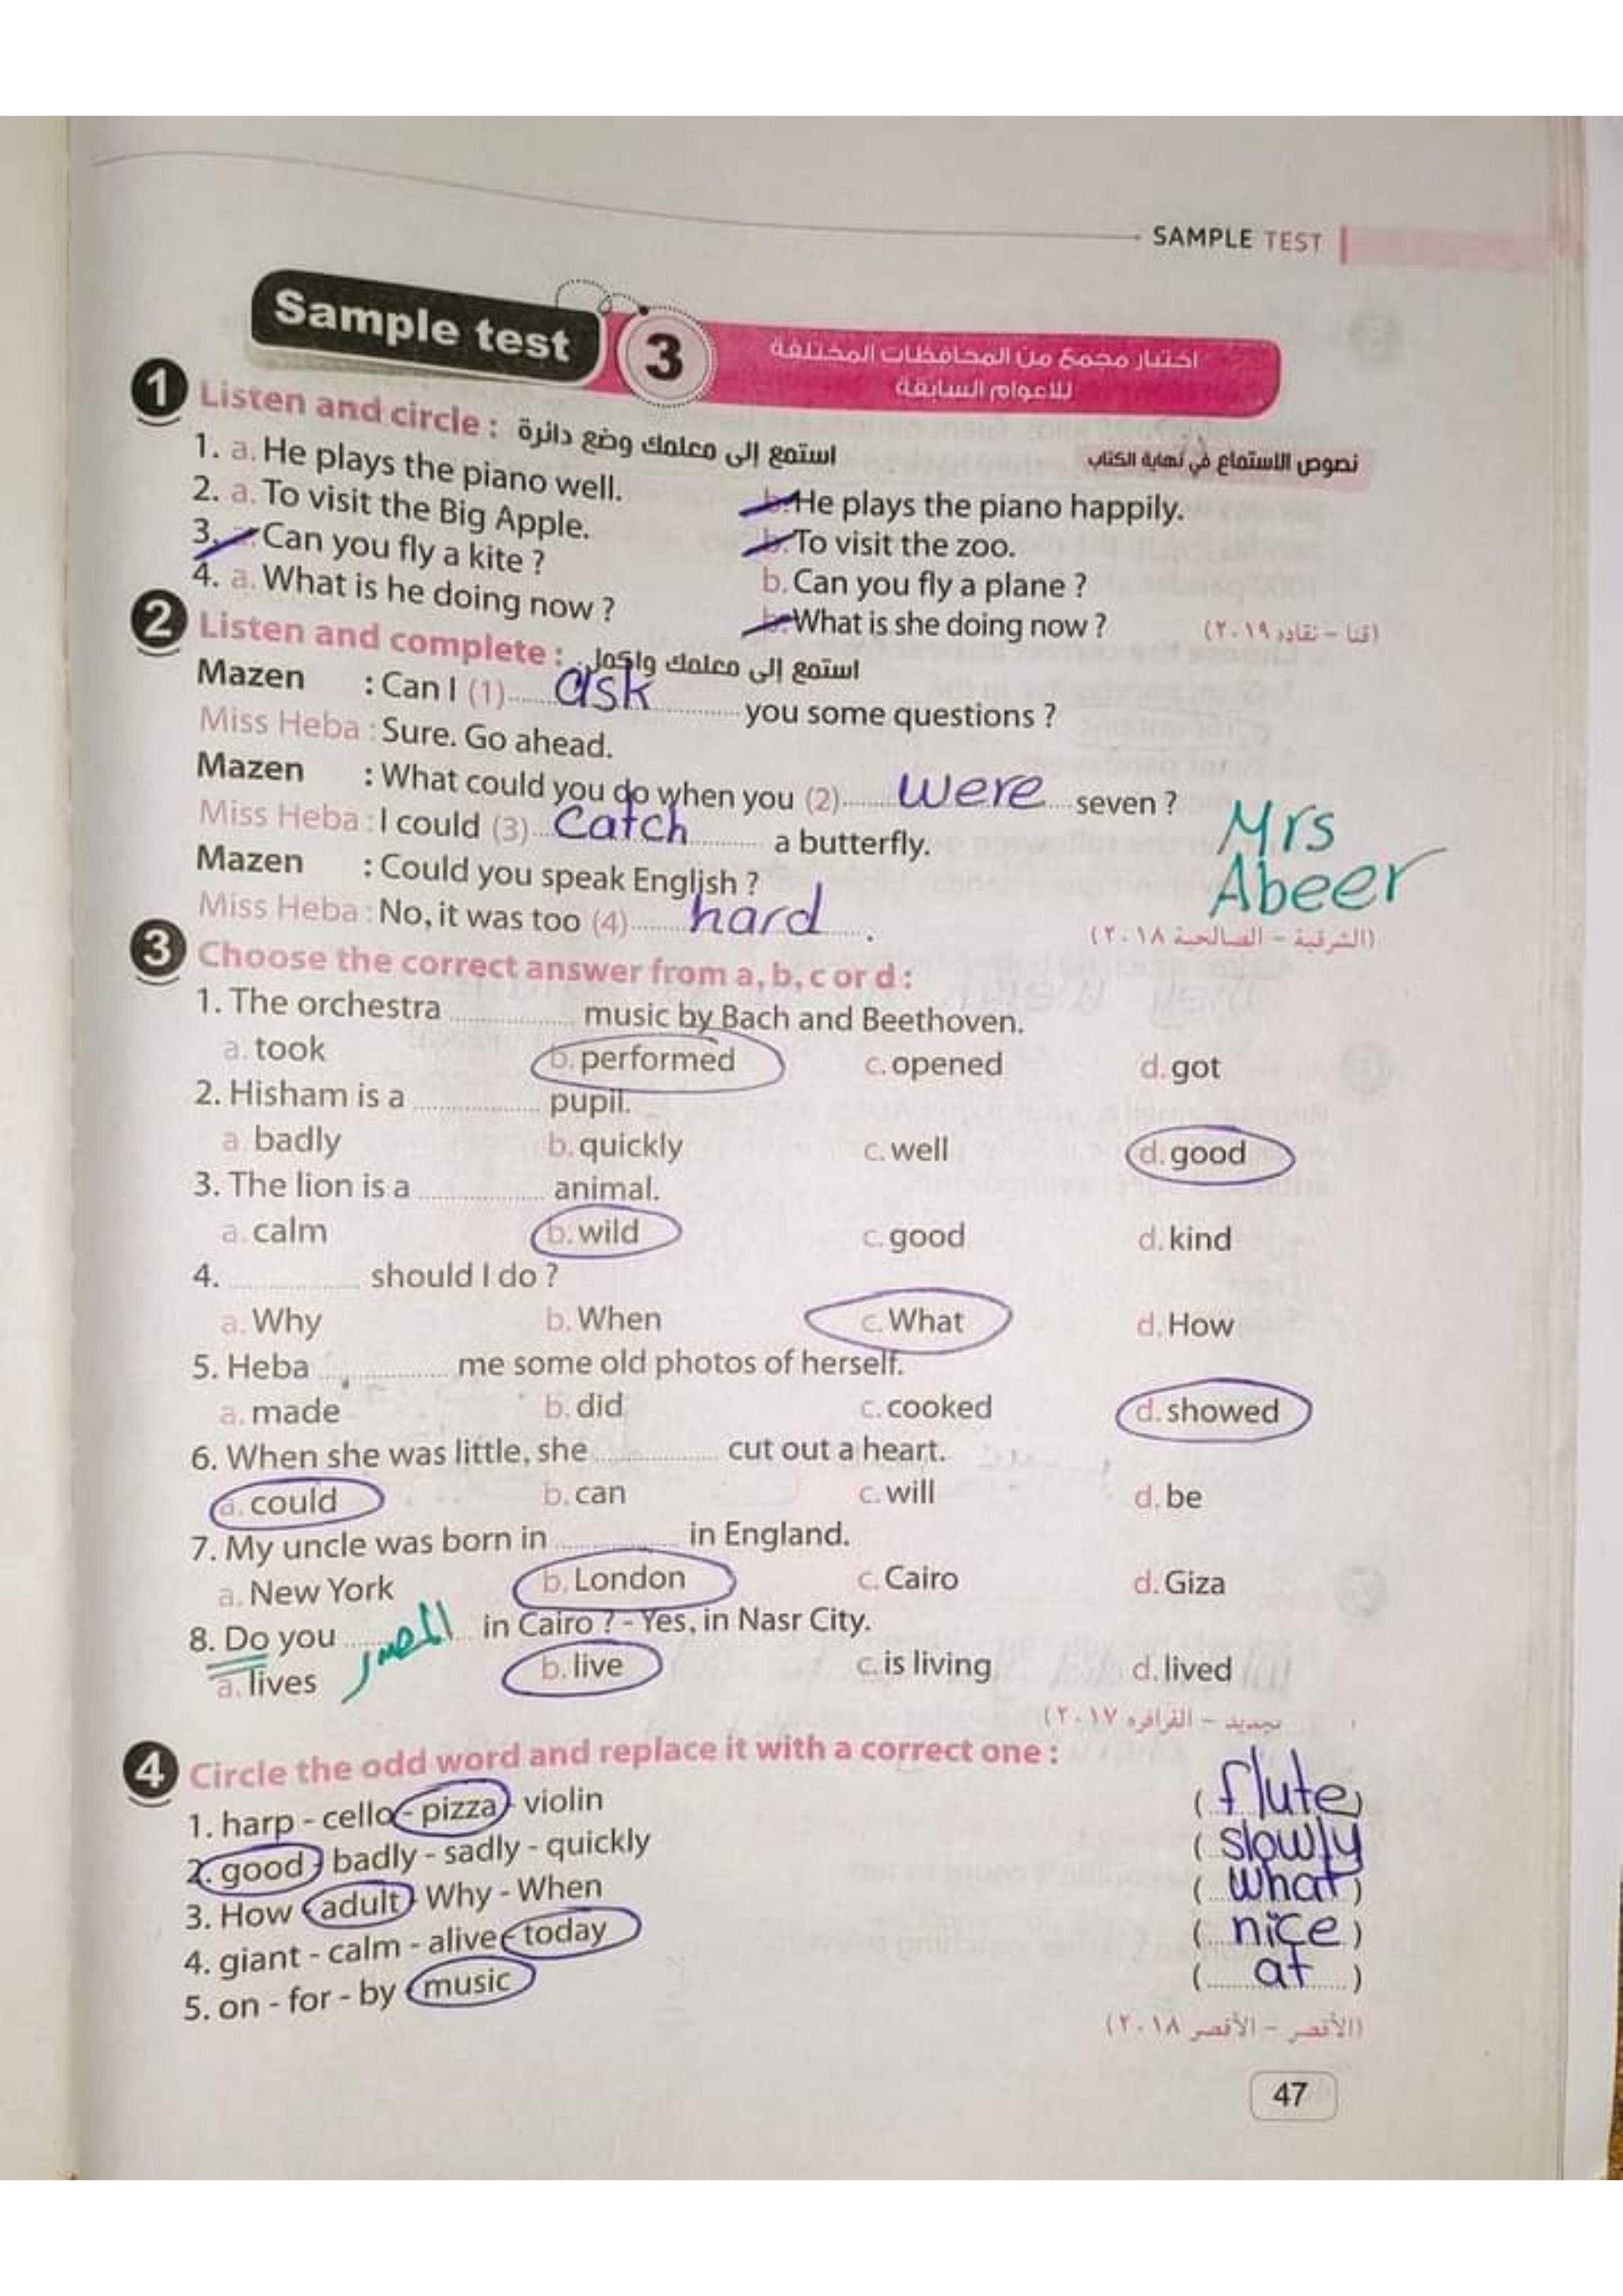 SAMPLE TEST
Sample test 3
اختبار مجمع من المحافظات المختلفة
للاعوام السابقة
1 Listen and circle : استمع إلى معلمك وضع دائرة
نصوص الاستماع في نهاية الكتاب
1. a. He plays the piano well. b. He plays the piano happily.
2. a. To visit the Big Apple. b. To visit the zoo.
3. a. Can you fly a kite ? b. Can you fly a plane ?
4. a. What is he doing now ? b. What is she doing now ?
(قنا – نقاده ٢٠١٩)
2 Listen and complete : استمع إلى معلمك واكمل
Mazen : Can I (1) ask you some questions ?
Miss Heba : Sure. Go ahead.
Mazen : What could you do when you (2) were seven ?
Miss Heba : I could (3) Catch a butterfly.
Mazen : Could you speak English ?
Miss Heba : No, it was too (4) hard .
Mrs
Abeer
(الشرقية – الصالحية ٢٠١٨)
3 Choose the correct answer from a, b, c or d :
1. The orchestra ............ music by Bach and Beethoven.
a. took b. performed c. opened d. got
2. Hisham is a ............ pupil.
a. badly b. quickly c. well d. good
3. The lion is a ............ animal.
a. calm b. wild c. good d. kind
4. ............ should I do ?
a. Why b. When c. What d. How
5. Heba ............ me some old photos of herself.
a. made b. did c. cooked d. showed
6. When she was little, she ............ cut out a heart.
a. could b. can c. will d. be
7. My uncle was born in ............ in England.
a. New York b. London c. Cairo d. Giza
8. Do you ............ in Cairo ? - Yes, in Nasr City.
المصدر
a. lives b. live c. is living d. lived
– الفرافره ٢٠١٧)
4 Circle the odd word and replace it with a correct one :
1. harp - cello - pizza - violin ( flute )
2. good - badly - sadly - quickly ( slowly )
3. How - adult - Why - When ( what )
4. giant - calm - alive - today ( nice )
5. on - for - by - music ( at )
(الأقصر – الأقصر ٢٠١٨)
47